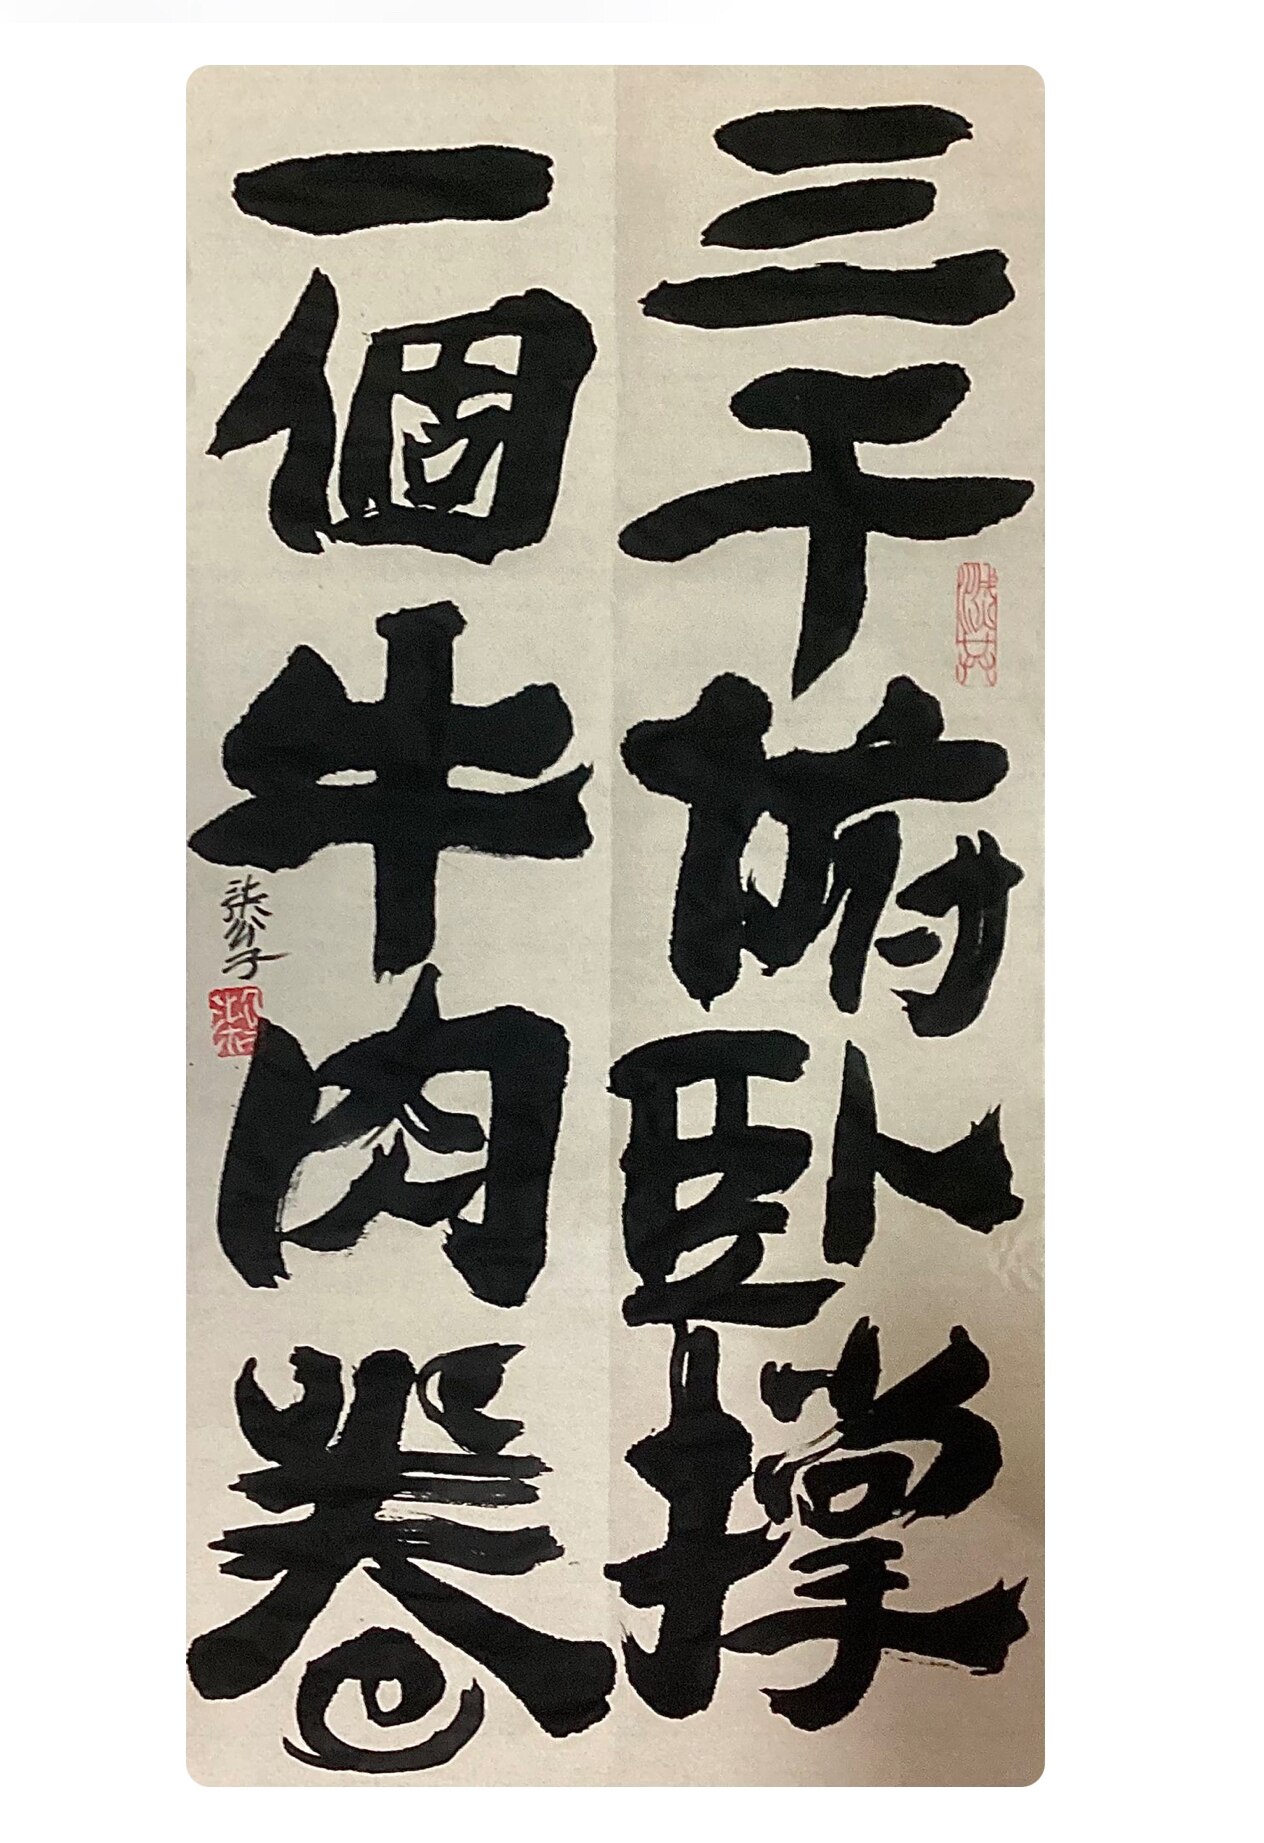 三千俯卧撑
一個牛肉卷
柒公子